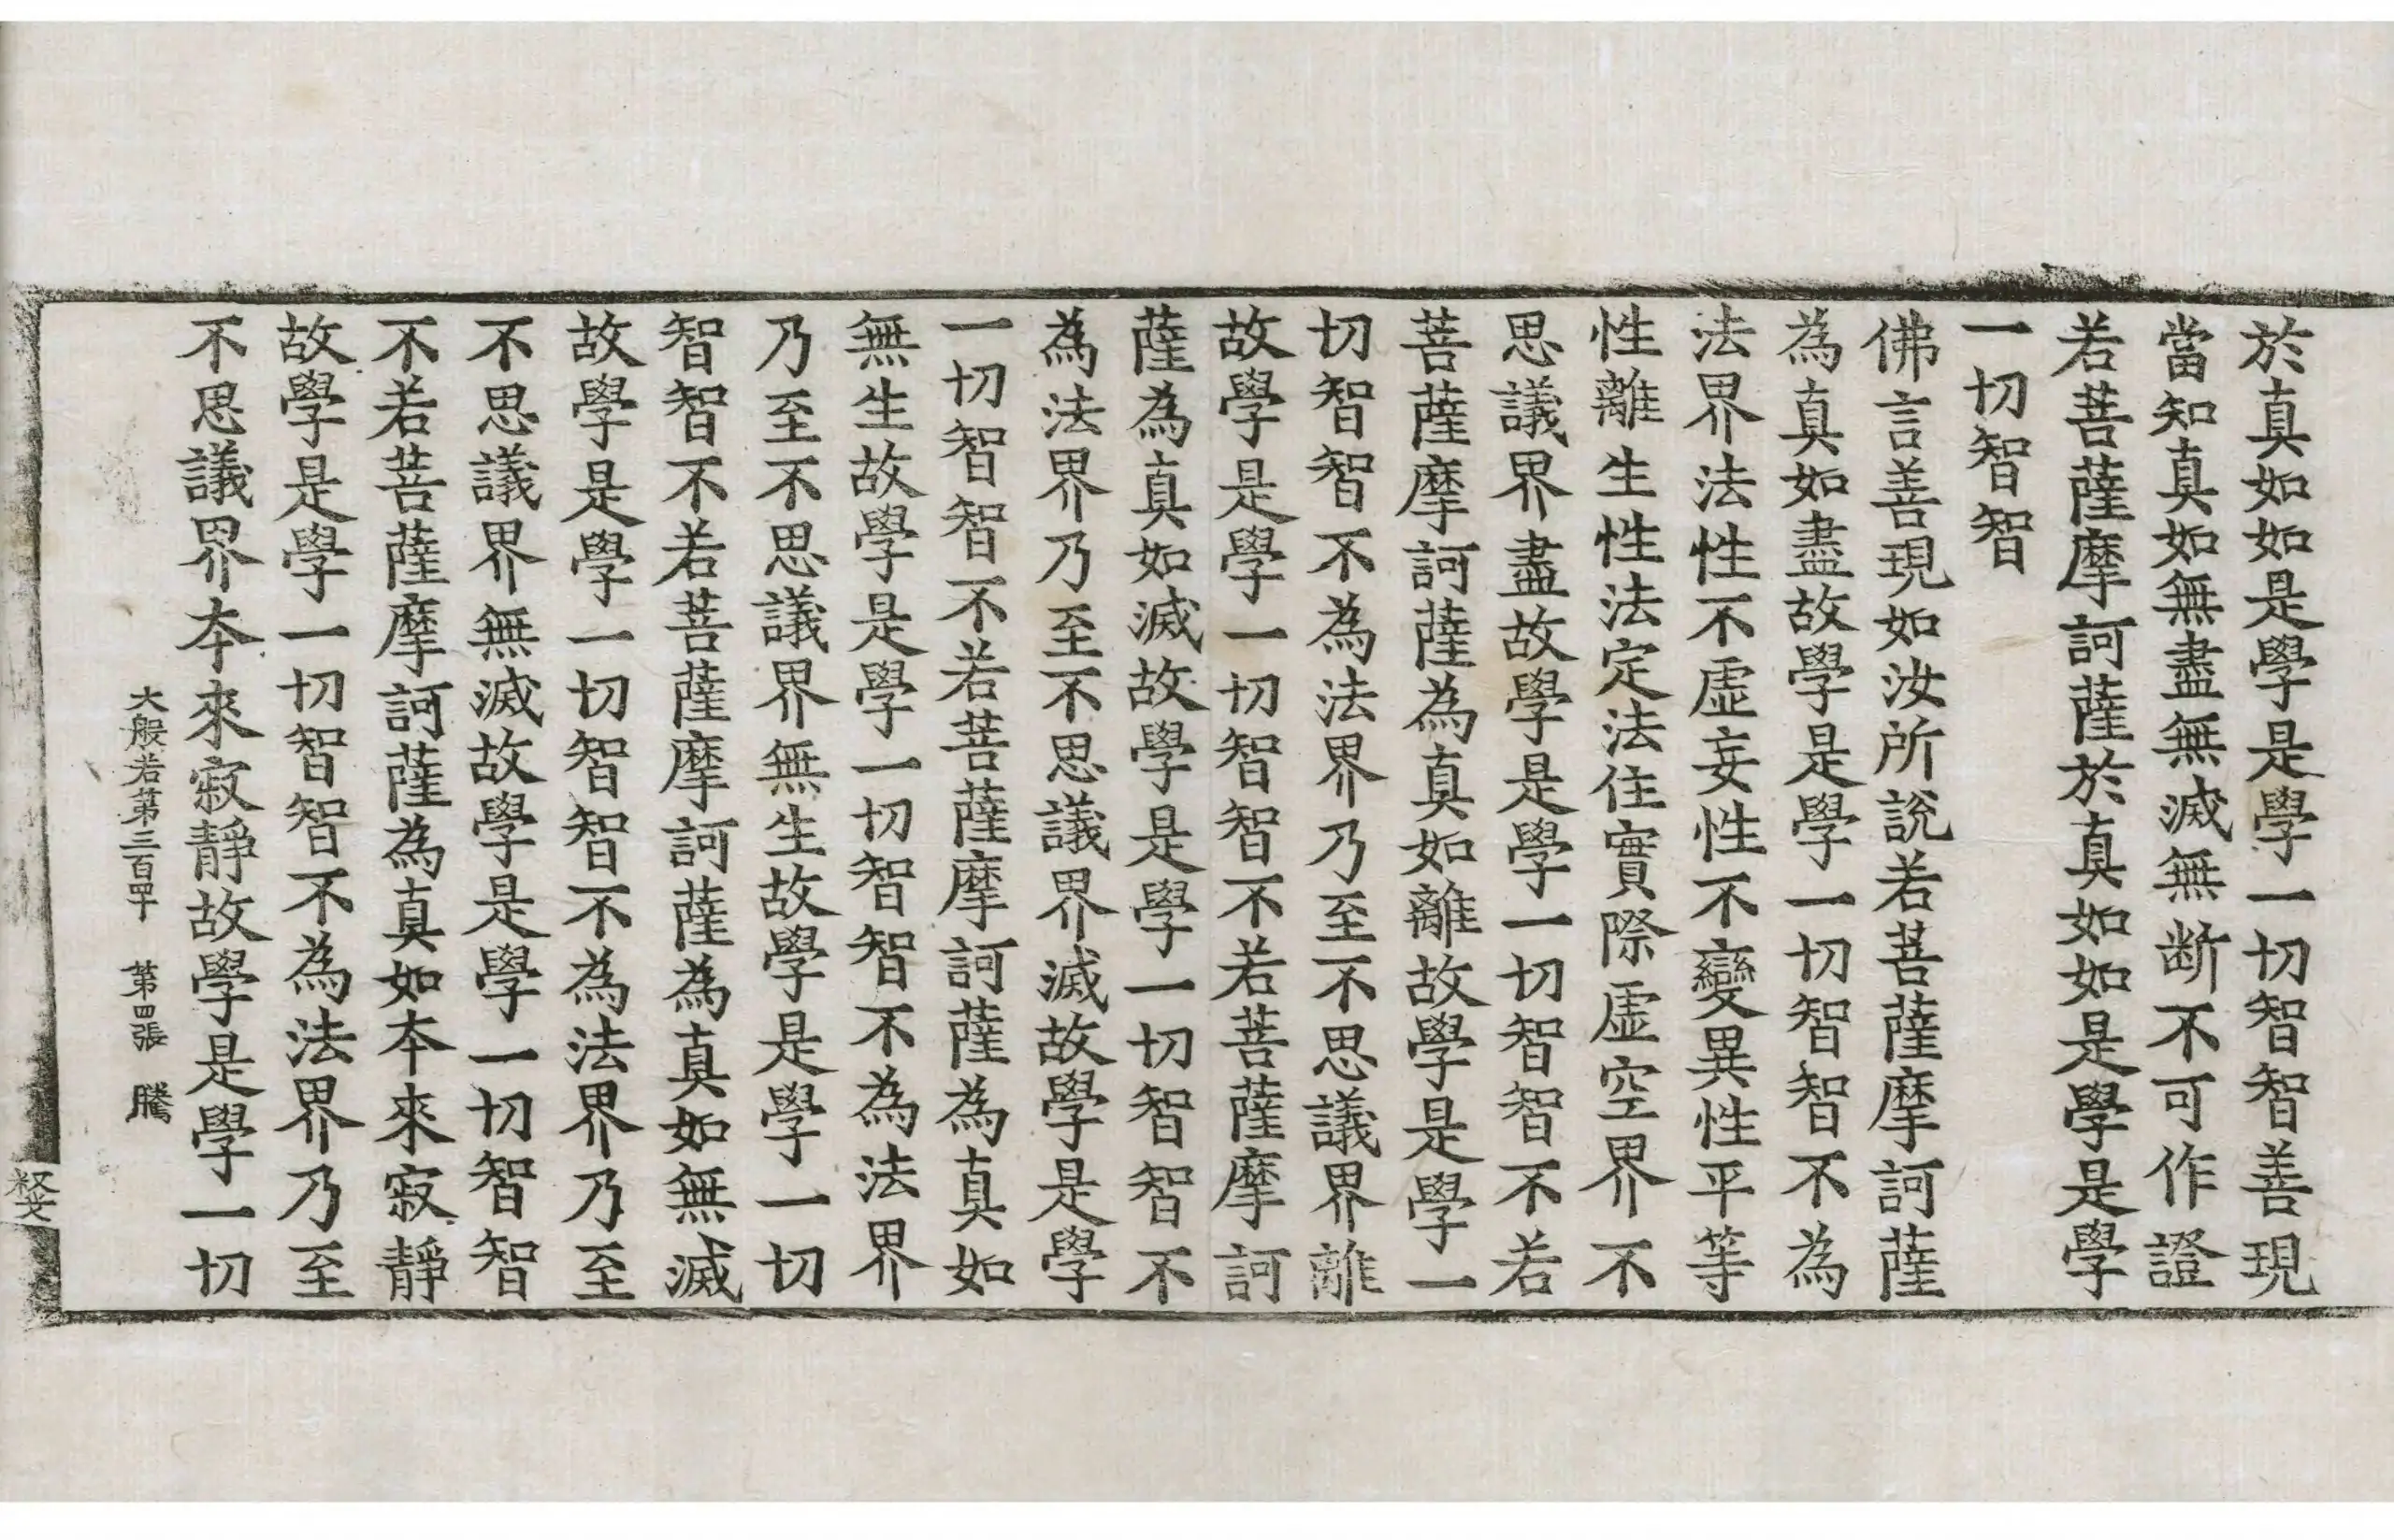 於真如如是學是學一切智智善現
當知真如無盡無滅無断不可作證
若菩薩摩訶薩於真如如是學是學
一切智智
佛言善現如汝所說若菩薩摩訶薩
為真如盡故學是學一切智智不為
法界法性不虛妄性不變異性平等
性離生性法定法住實際虛空界不
思議界盡故學是學一切智智不若
菩薩摩訶薩為真如離故學是學一
切智智不為法界乃至不思議界離
故學是學一切智智不若菩薩摩訶
薩為真如滅故學是學一切智智不
為法界乃至不思議界滅故學是學
一切智智不若菩薩摩訶薩為真如
無生故學是學一切智智不為法界
乃至不思議界無生故學是學一切
智智不若菩薩摩訶薩為真如無滅
故學是學一切智智不為法界乃至
不思議界無滅故學是學一切智智
不若菩薩摩訶薩為真如本來寂靜
故學是學一切智智不為法界乃至
不思議界本來寂靜故學是學一切
大般若第三百四十 第四張 騰